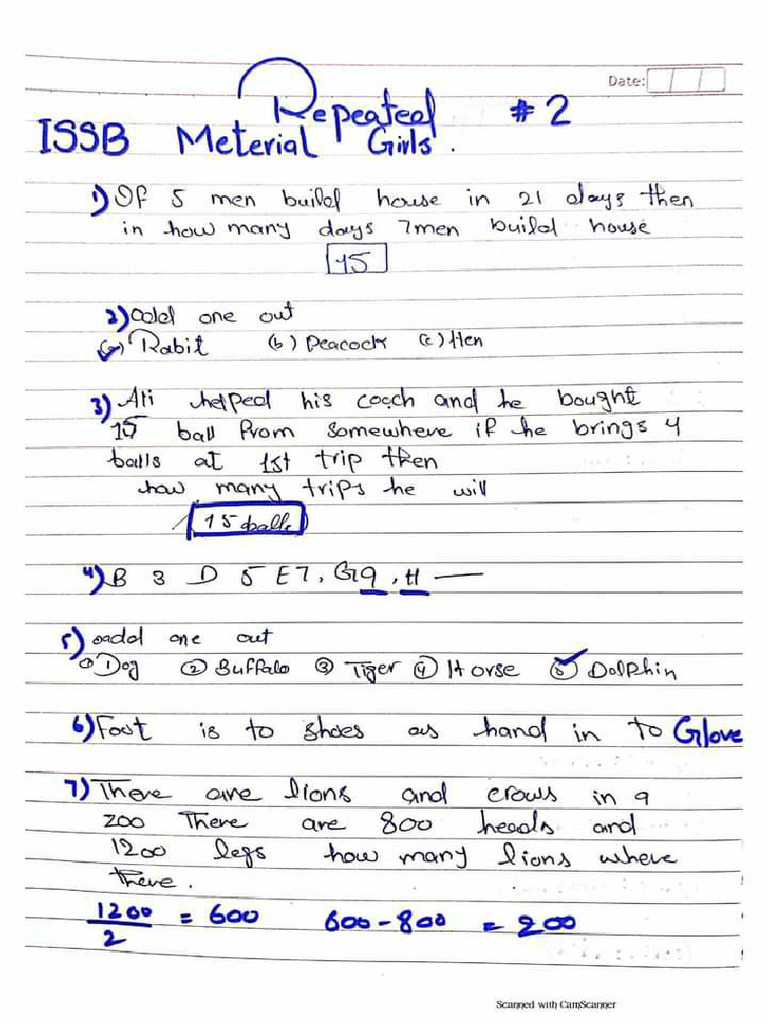 Date:
Repeated #2
ISSB Meterial Girls.
1) If 5 men build house in 21 days then
in how many days 7men build house
15
2) odd one out
(a) Rabit (b) Peacock (c) Hen
3) Ali helped his coach and he bought
15 ball from somewhere if he brings 4
balls at 1st trip then
how many trips he will
15 ball
4) B 3 D 5 E7, G9, H —
5) odd one out
① Dog ② Buffalo ③ Tiger ④ Horse ⑤ Dolphin
6) Foot is to shoes as hand in to Glove
7) There are lions and crows in a
zoo There are 800 heads and
1200 legs how many lions where
there.
1200/2 = 600 600-800 = 200
Scanned with CamScanner